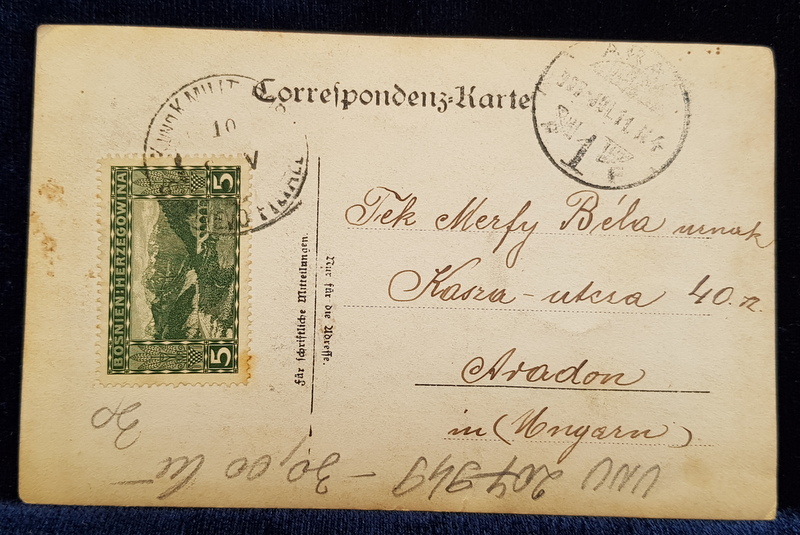 Correspondenz-Karte
BOSNIEN HERZEGOWINA
5
5
K.UND K. MILIT.
10
V
ARAD
Für schriftliche Mitteilungen.
Nur für die Adresse.
Tek Merfy Béla urnak
Kasza-utcza 40. sz.
Aradon
in (Ungarn)
VNV 207949 - 30,00 lei
30